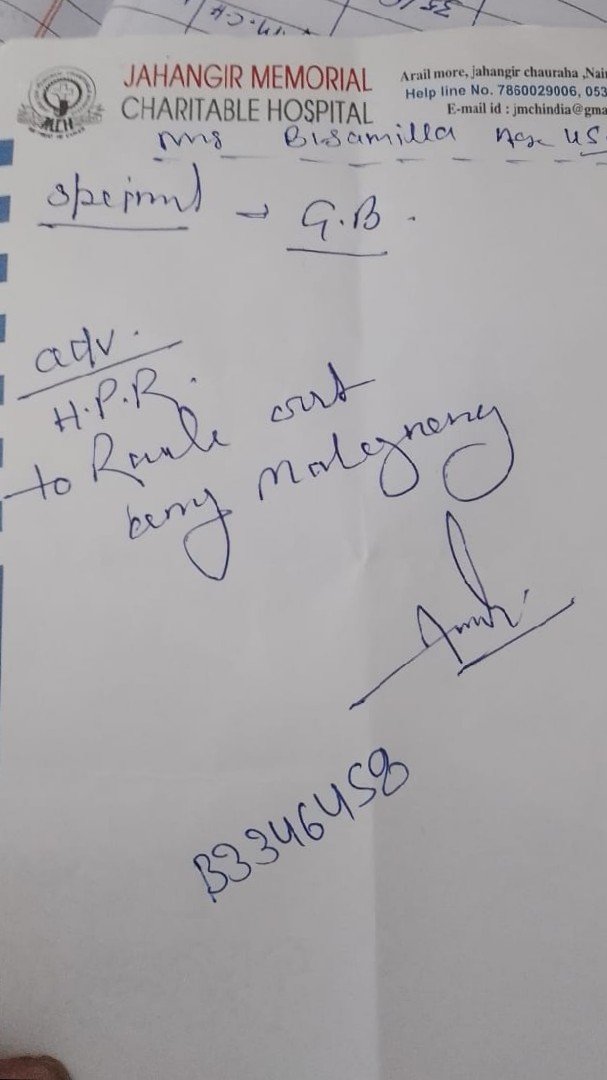 35/
M.CH
JAHANGIR MEMORIAL
CHARITABLE HOSPITAL
Arail more, jahangir chauraha ,Nai
Help line No. 7860029006, 053
E-mail id : jmchindia@gma
JMCH
Mrs Bisamilla Age 45
Speimnl → G.B.
adv.
H.P.R.
to Raule out
beny Malegneny
B3346458